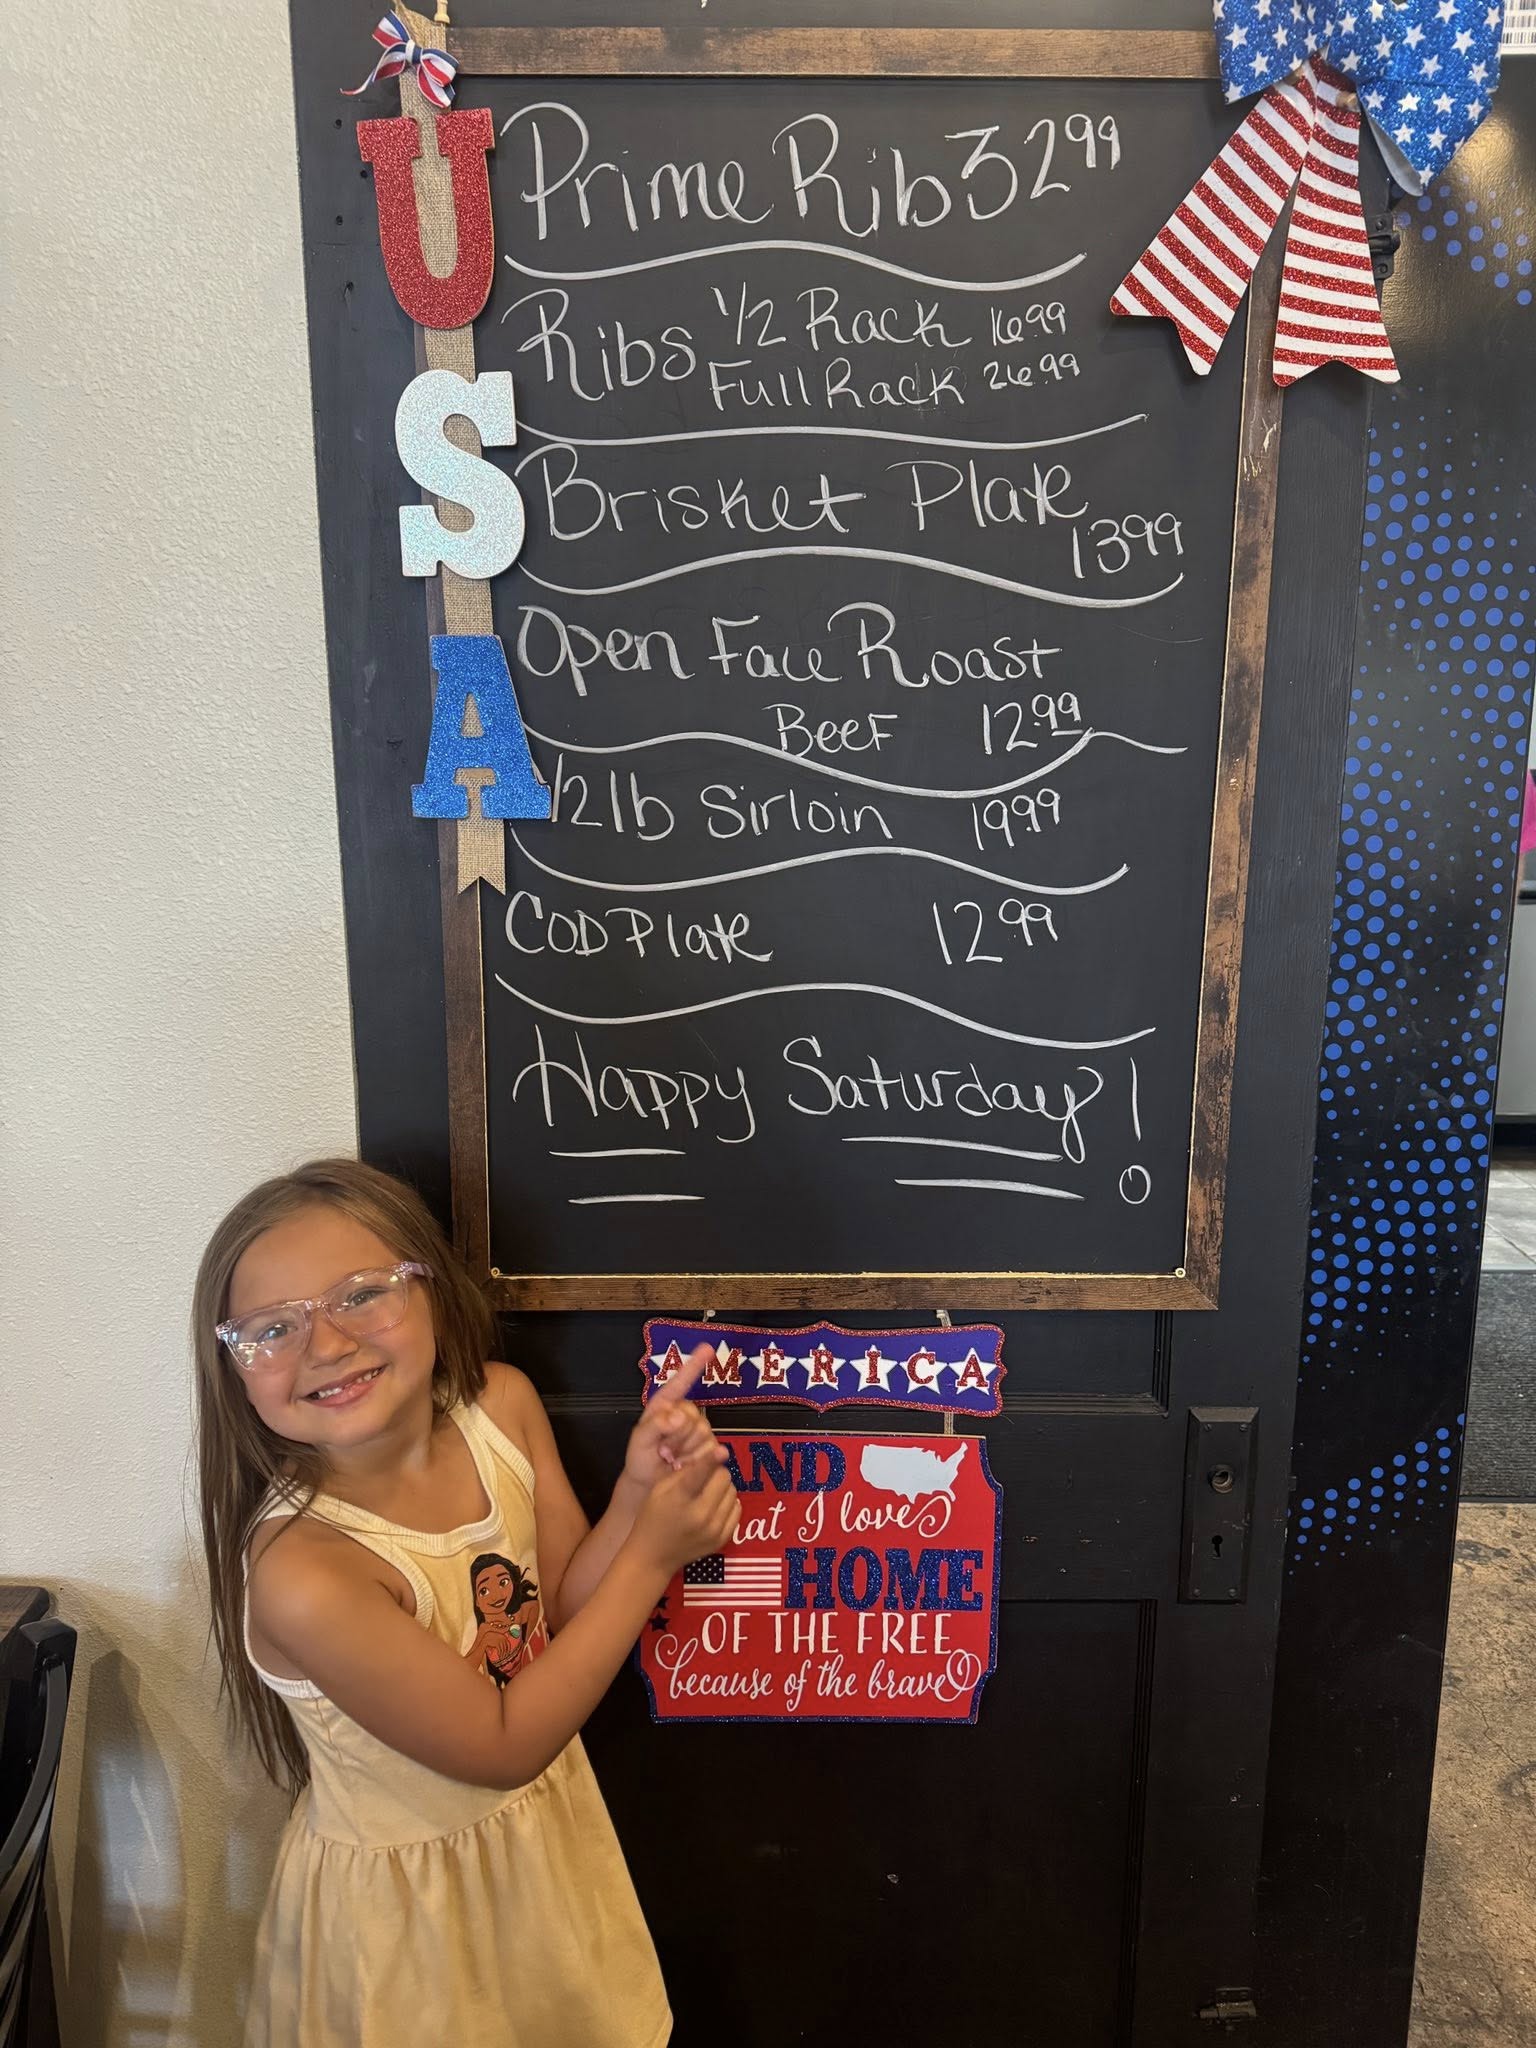 USA
Prime Rib 32 99
Ribs 1/2 Rack 16.99
Full Rack 26.99
Brisket Plate
13 99
Open Face Roast
Beef 12.99
1/2 lb Sirloin 19.99
COD Plate 12 99
Happy Saturday!
AMERICA
AND
that I love
HOME
OF THE FREE
because of the brave